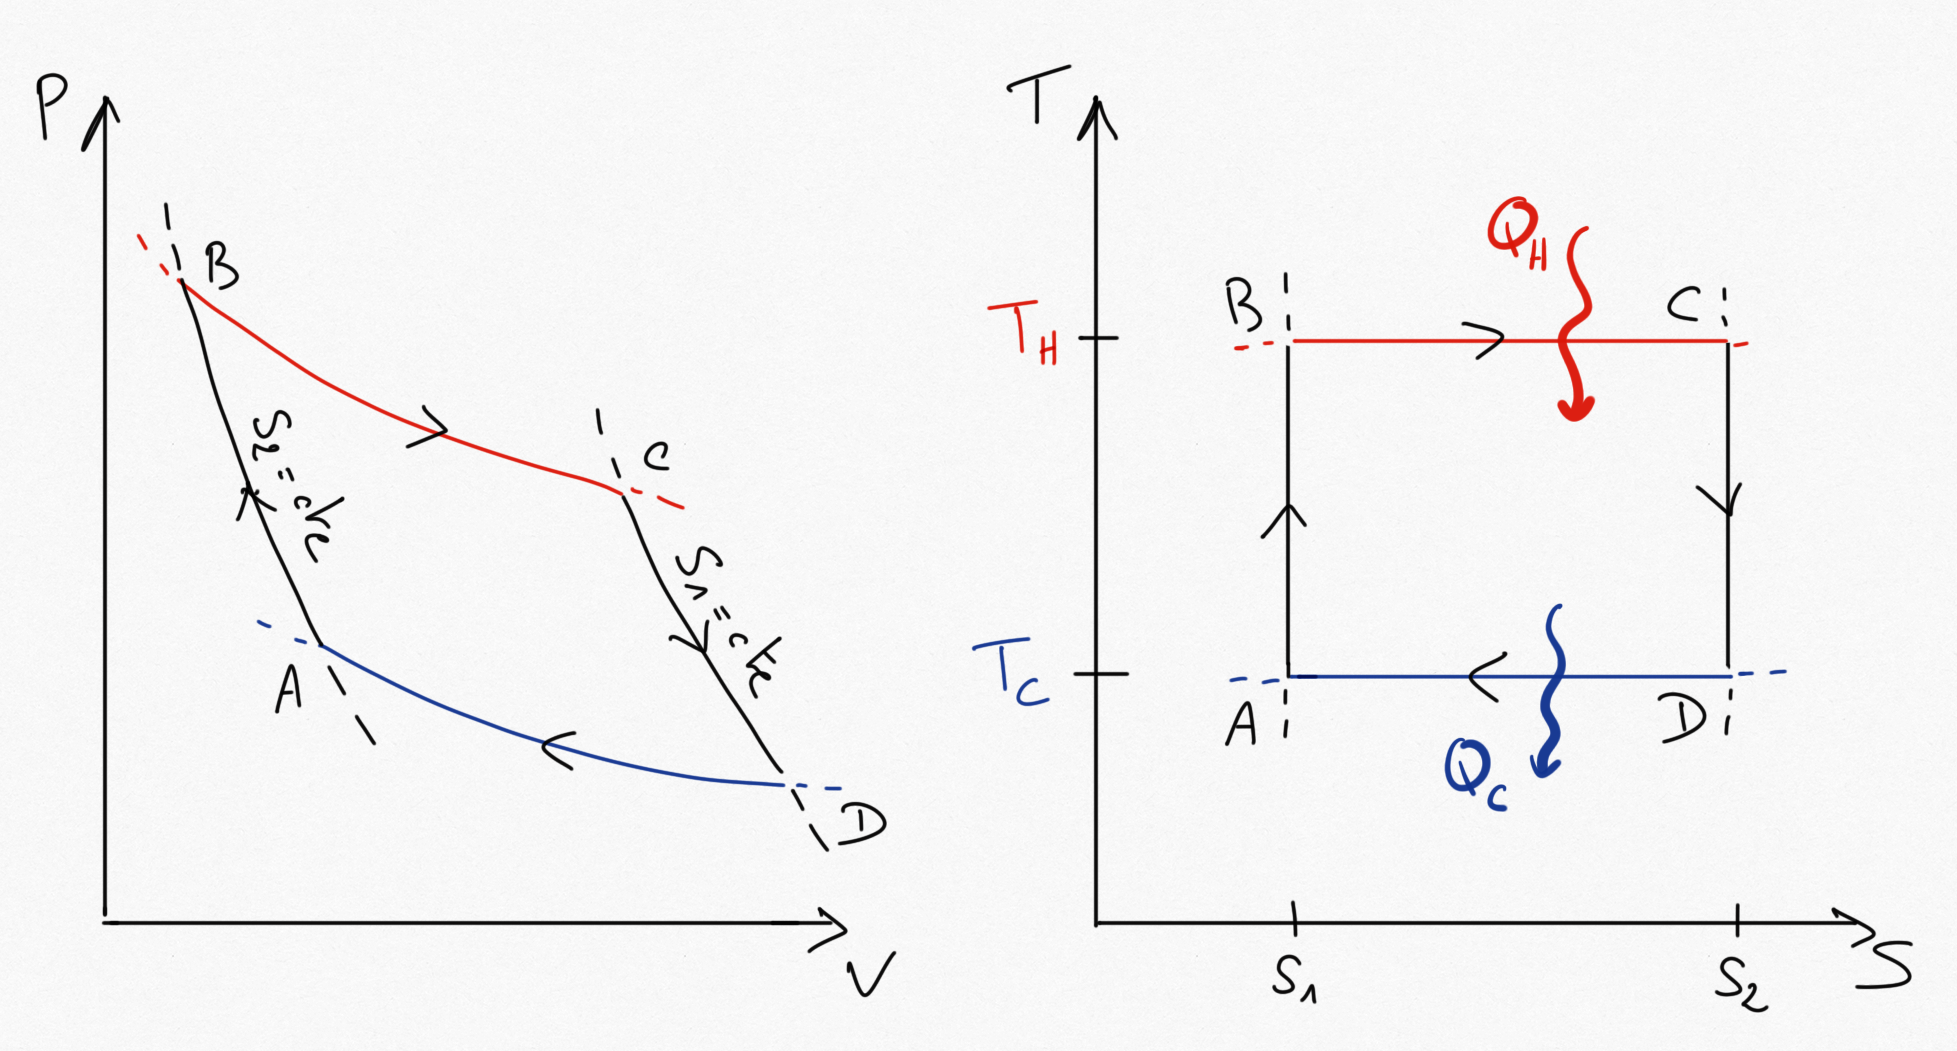 P
B
S₂ = cte
C
S₁ = cte
A
D
V
T
Q_H
T_H
B
C
T_C
A
D
Q_C
S₁
S₂
S